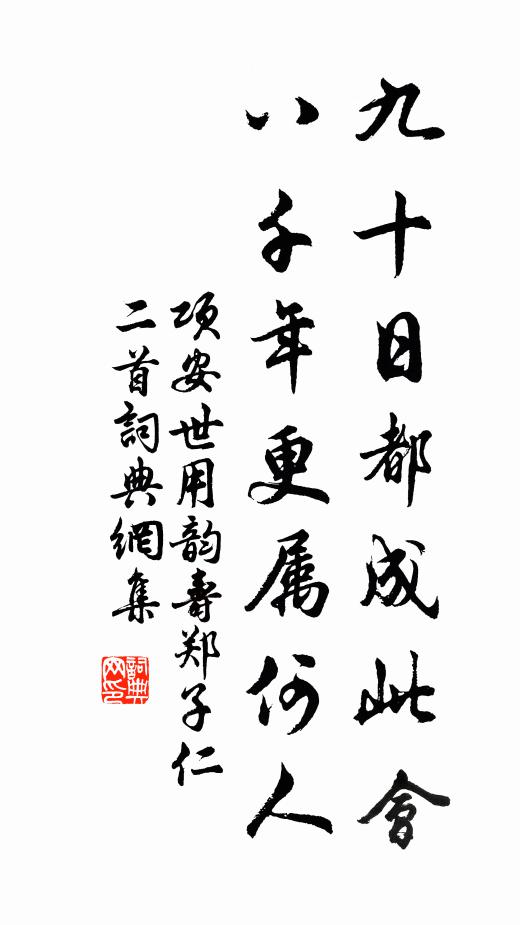 九十日都成此會
八千年更属何人
项安世用韵壽郑子仁
二首詞典網集
詞典網印